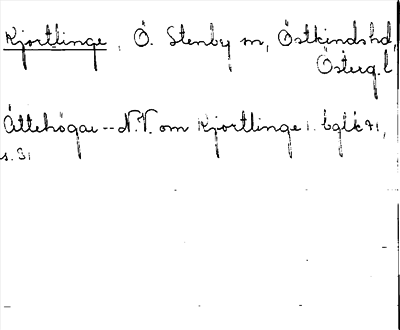 Kjortlinge, Ö. Stenby sn, Östkinds hd,
Österg. l
Ättehögar -- N.V. om Kjortlinge. bglk 41,
s. 31